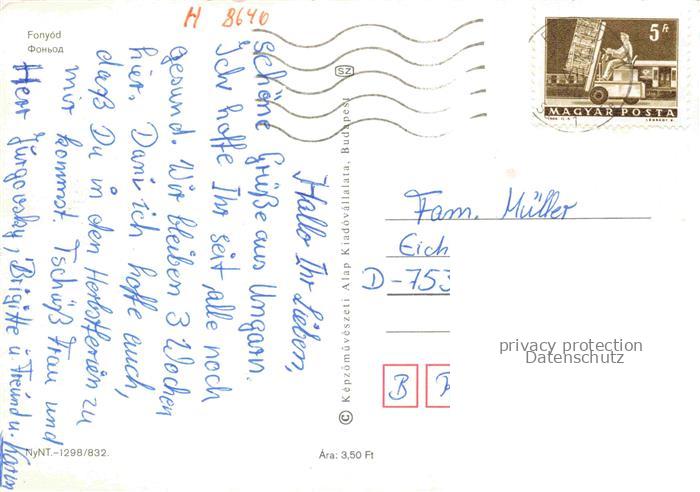 Fonyód
Фоньод
H 8640
Hallo Ihr Lieben,
schöne Grüße aus Ungarn.
Ich hoffe Ihr seit alle noch
gesund. Wir bleiben 3 Wochen
hier. Dani ich hoffe auch,
daß Du in den Herbstferien zu
mir kommst. Tschüß Frau und
Herr Jürgovsky, Brigitte u. Freund u. Karin
NyNT.–1298/832.
Ára: 3,50 Ft
© Képzőművészeti Alap Kiadóvállalata, Budapest
SZ
5 Ft
MAGYAR POSTA
Fam. Müller
Eich
D-753
B
privacy protection
Datenschutz